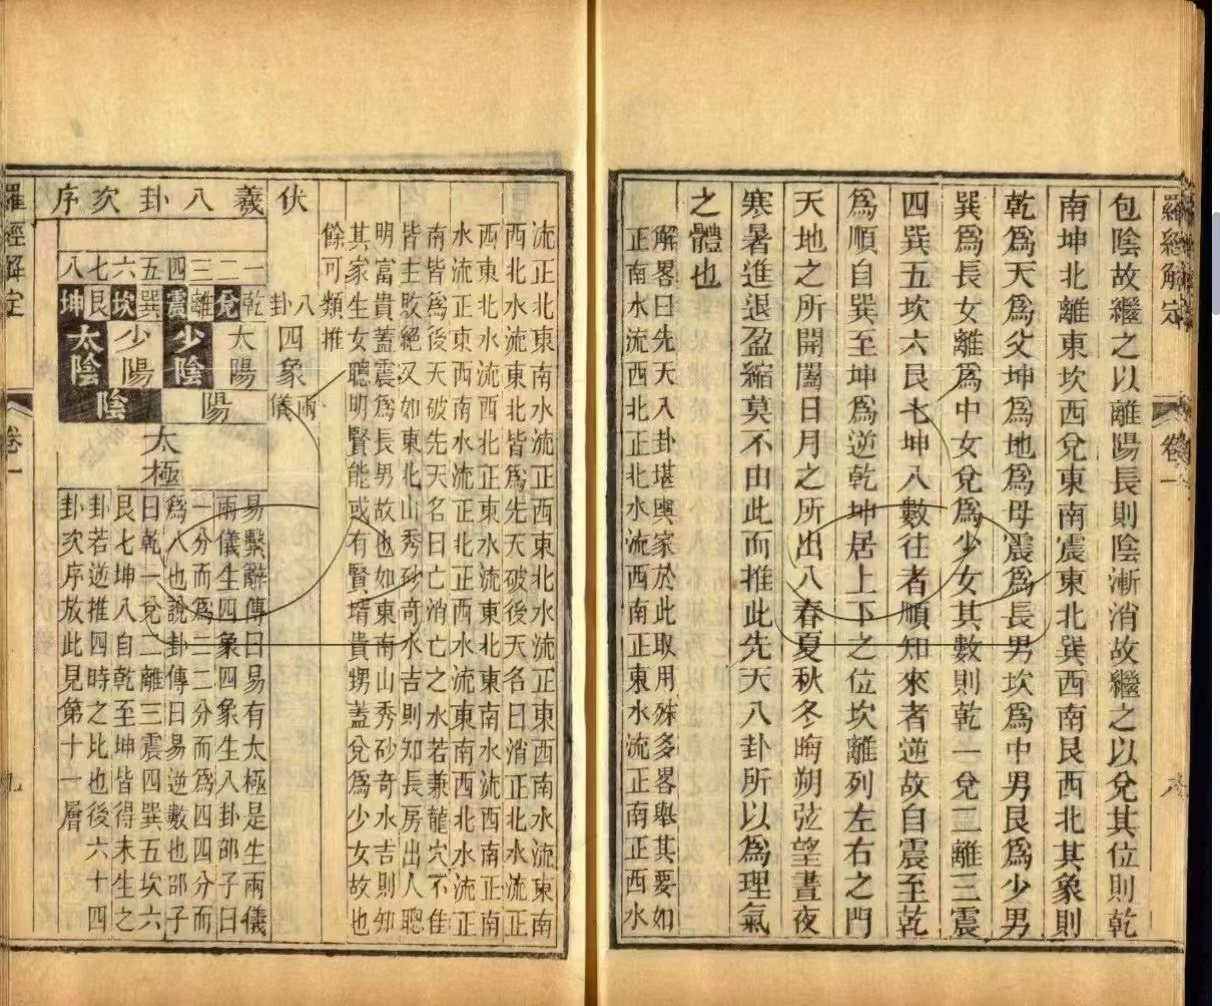 羅經解定
卷一
包陰故繼之以離陽長則陰漸消故繼之以兌其位則乾
南坤北離東坎西兌東南震東北巽西南艮西北其象則
乾爲天爲父坤爲地爲母震爲長男坎爲中男艮爲少男
巽爲長女離爲中女兌爲少女其數則乾一兌二離三震
四巽五坎六艮七坤八數往者順知來者逆故自震至乾
爲順自巽至坤爲逆乾坤居上下之位坎離列左右之門
天地之所開闔日月之所出入春夏秋冬晦朔弦望晝夜
寒暑進退盈縮莫不由此而推此先天八卦所以爲理氣
之體也
解畧曰先天入卦堪輿家於此取用殊多畧舉其要如
正南水流西北正北水流西南正東水流正南正西水
流正北東南水流正西東北水流正東西南水流東南
西北水流東北皆爲先天破後天名曰消正北水流正
西東北水流西北正東水流東北東南水流西南正南
水流正東西南水流正北正西水流東南西北水流正
南皆爲後天破先天名曰亡消亡之水若兼龍穴不佳
皆主敗絕又如東北山秀砂奇水吉則知長房出人聰
明富貴蓋震爲長男故也如東南山秀砂奇水吉則知
其家生女聰明賢能或有賢壻貴甥蓋兌爲少女故也
餘可類推
伏羲八卦次序
一二三四五六七八
八卦
乾兌離震巽坎艮坤
四象
太陽
少陰
少陽
太陰
兩儀
陽
陰
太極
易繫辭傳曰易有太極是生兩儀
兩儀生四象四象生八卦邵子曰
一分而爲二二分而爲四四分而
爲八也說卦傳曰易逆數也邵子
曰乾一兌二離三震四巽五坎六
艮七坤八自乾至坤皆得未生之
卦若逆推四時之比也後六十四
卦次序放此見第十一層
羅經解定
卷一
九